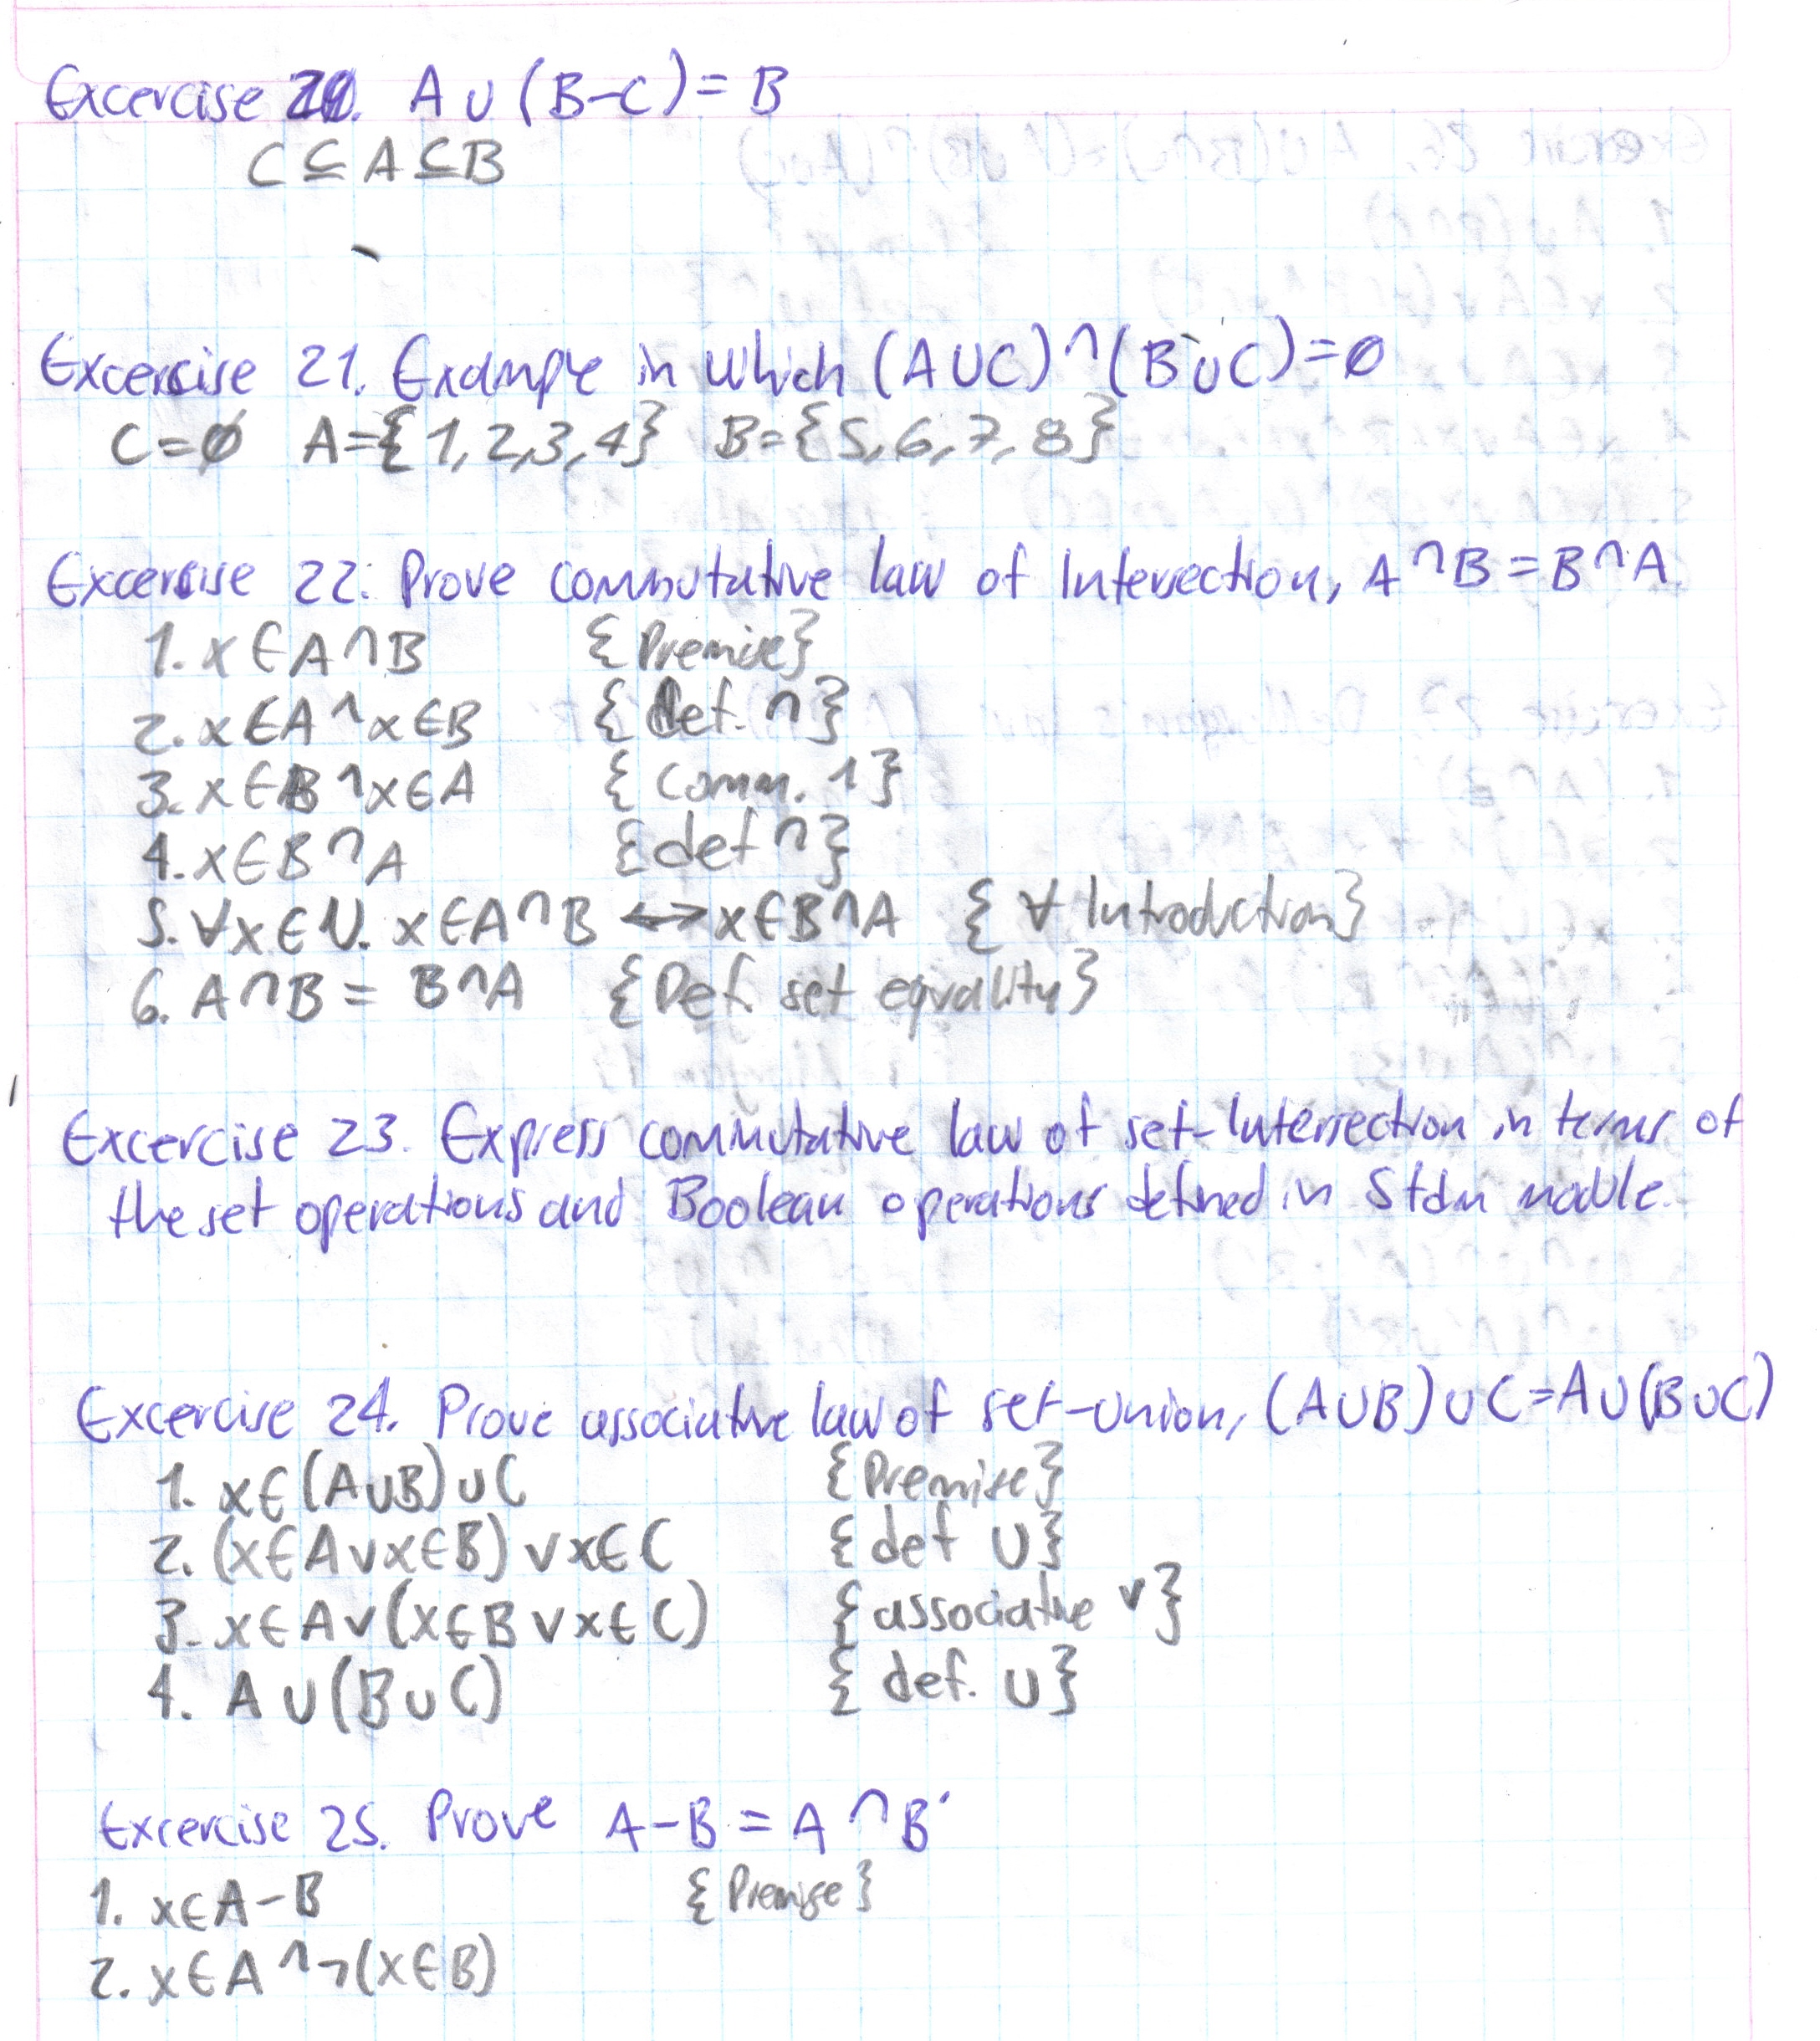 Excercise 20. A ∪ (B-C) = B
C ⊆ A ⊆ B
Excercise 21. Example in which (A∪C)∩(B∪C)=∅
C=∅ A={1,2,3,4} B={5,6,7,8}
Excercise 22. Prove commutative law of Intersection, A∩B = B∩A.
1. x∈A∩B {Premise}
2. x∈A ∧ x∈B {def. ∩}
3. x∈B ∧ x∈A {Comm. ∧}
4. x∈B∩A {def ∩}
5. ∀x∈U. x∈A∩B ↔ x∈B∩A {∀ Introduction}
6. A∩B = B∩A {Def. set equality}
Excercise 23. Express commutative law of set-Intersection in terms of
the set operations and Boolean operations defined in Stdm module.
Excercise 24. Prove associative law of set-union, (A∪B)∪C=A∪(B∪C)
1. x∈(A∪B)∪C {Premise}
2. (x∈A∨x∈B)∨x∈C {def ∪}
3. x∈A∨(x∈B∨x∈C) {associative ∨}
4. A∪(B∪C) {def. ∪}
Excercise 25. Prove A-B = A∩B'
1. x∈A-B {Premise}
2. x∈A ∧ ¬(x∈B)